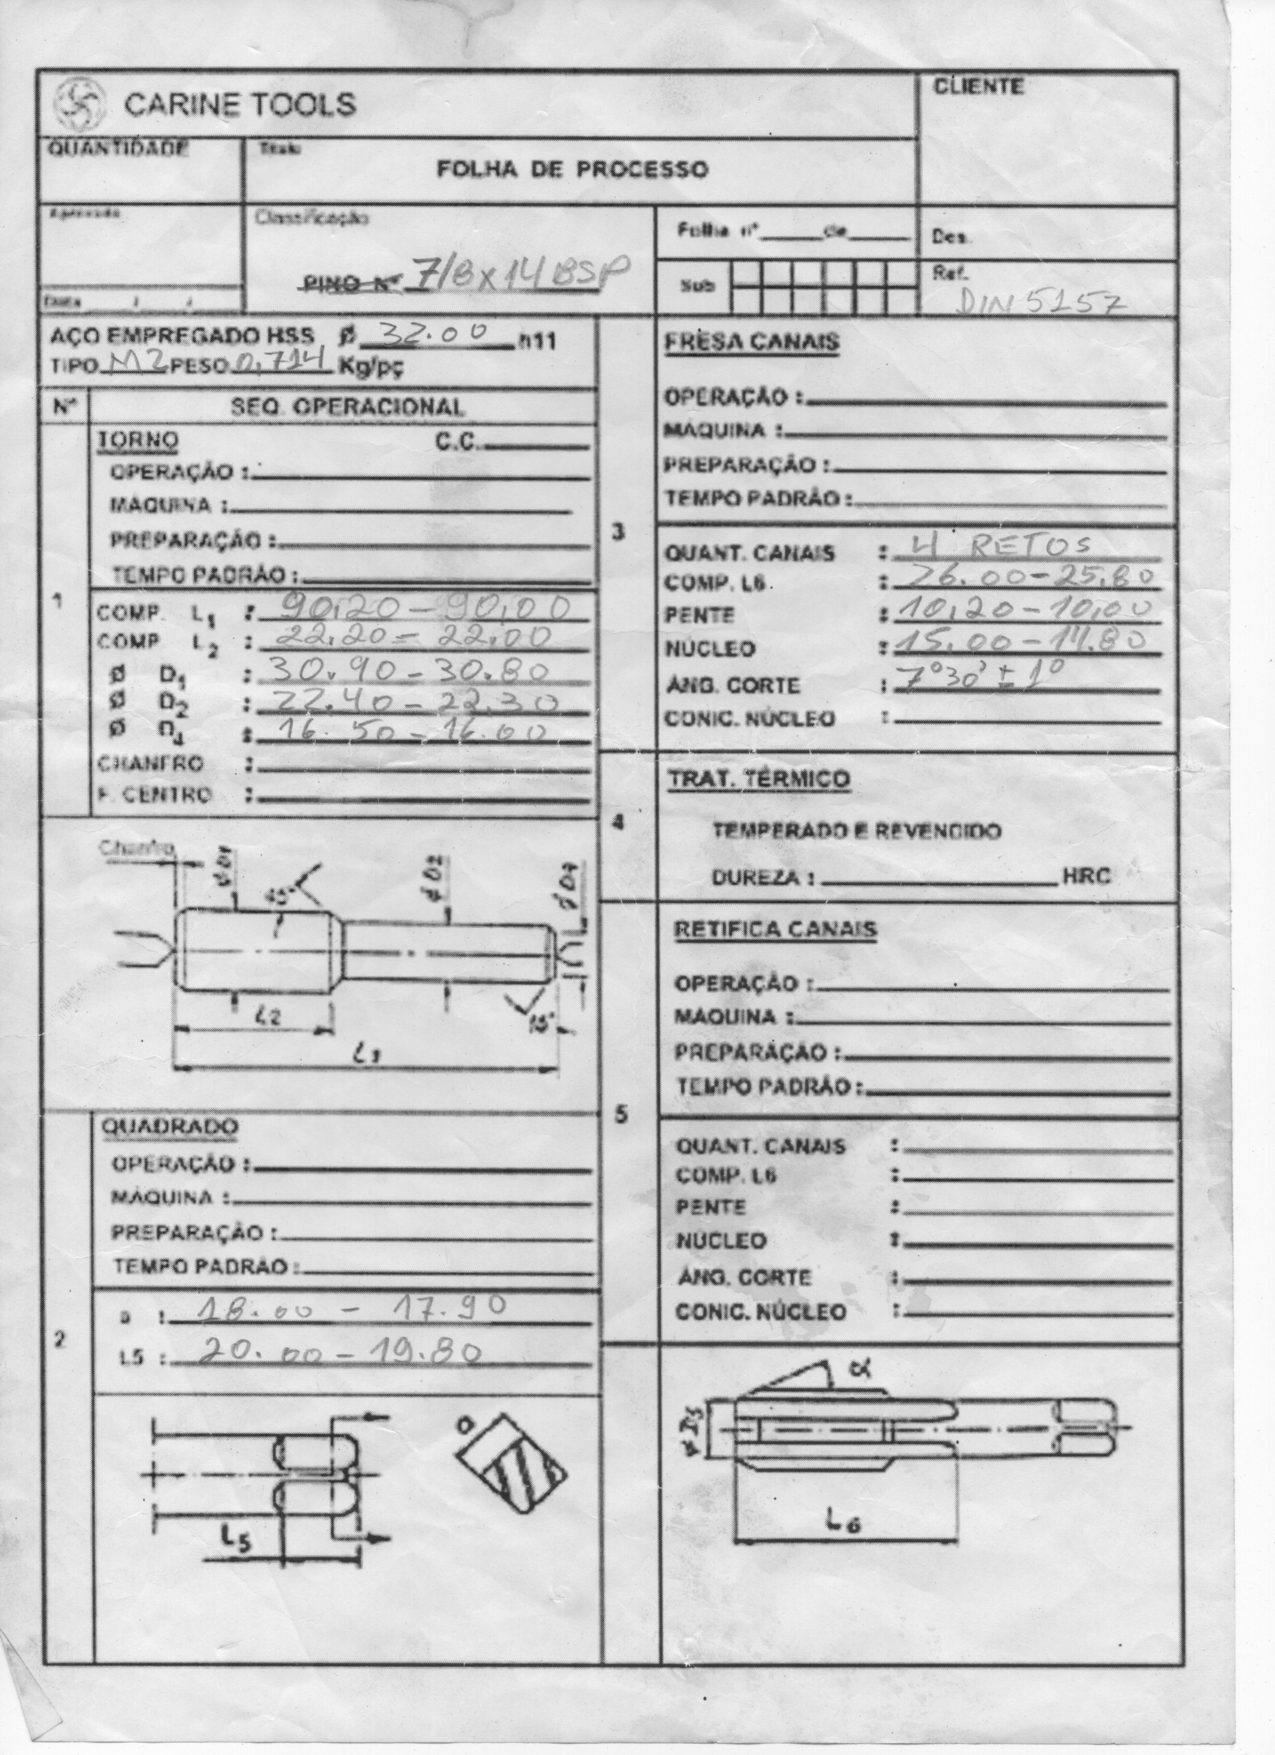 CARINE TOOLS
CLIENTE
QUANTIDADE
Titulo
FOLHA DE PROCESSO
Aprovado
Classificação
PINO Nº 7/8 x 14 BSP
Data / /
Folha nº de
Des.
Sub
Ref.
DIN 5157
AÇO EMPREGADO HSS Ø 32.00 h11
TIPO M2 PESO 0,714 Kg/pç
Nº SEQ. OPERACIONAL
1
TORNO C.C.
OPERAÇÃO :
MÁQUINA :
PREPARAÇÃO :
TEMPO PADRÃO :
COMP. L1 : 90,20 - 90,00
COMP L2 : 22.20 - 22.00
Ø D1 : 30.90 - 30.80
Ø D2 : 22.40 - 22.30
Ø D4 : 16.50 - 16.00
CHANFRO :
F. CENTRO :
Chanfro
Ø D1
45°
Ø D2
Ø D4
L2
15°
L1
2
QUADRADO
OPERAÇÃO :
MÁQUINA :
PREPARAÇÃO :
TEMPO PADRÃO :
a : 18.00 - 17.90
L5 : 20.00 - 19.80
a
L5
3
FRESA CANAIS
OPERAÇÃO :
MÁQUINA :
PREPARAÇÃO :
TEMPO PADRÃO :
QUANT. CANAIS : 4 RETOS
COMP. L6. : 26.00 - 25.80
PENTE : 10,20 - 10,00
NÚCLEO : 15.00 - 14.80
ÂNG. CORTE : 7°30' ± 1°
CONIC. NÚCLEO :
4
TRAT. TÉRMICO
TEMPERADO E REVENDIDO
DUREZA : HRC
5
RETIFICA CANAIS
OPERAÇÃO :
MÁQUINA :
PREPARAÇÃO :
TEMPO PADRÃO :
QUANT. CANAIS :
COMP. L6 :
PENTE :
NÚCLEO :
ÂNG. CORTE :
CONIC. NÚCLEO :
α
L6